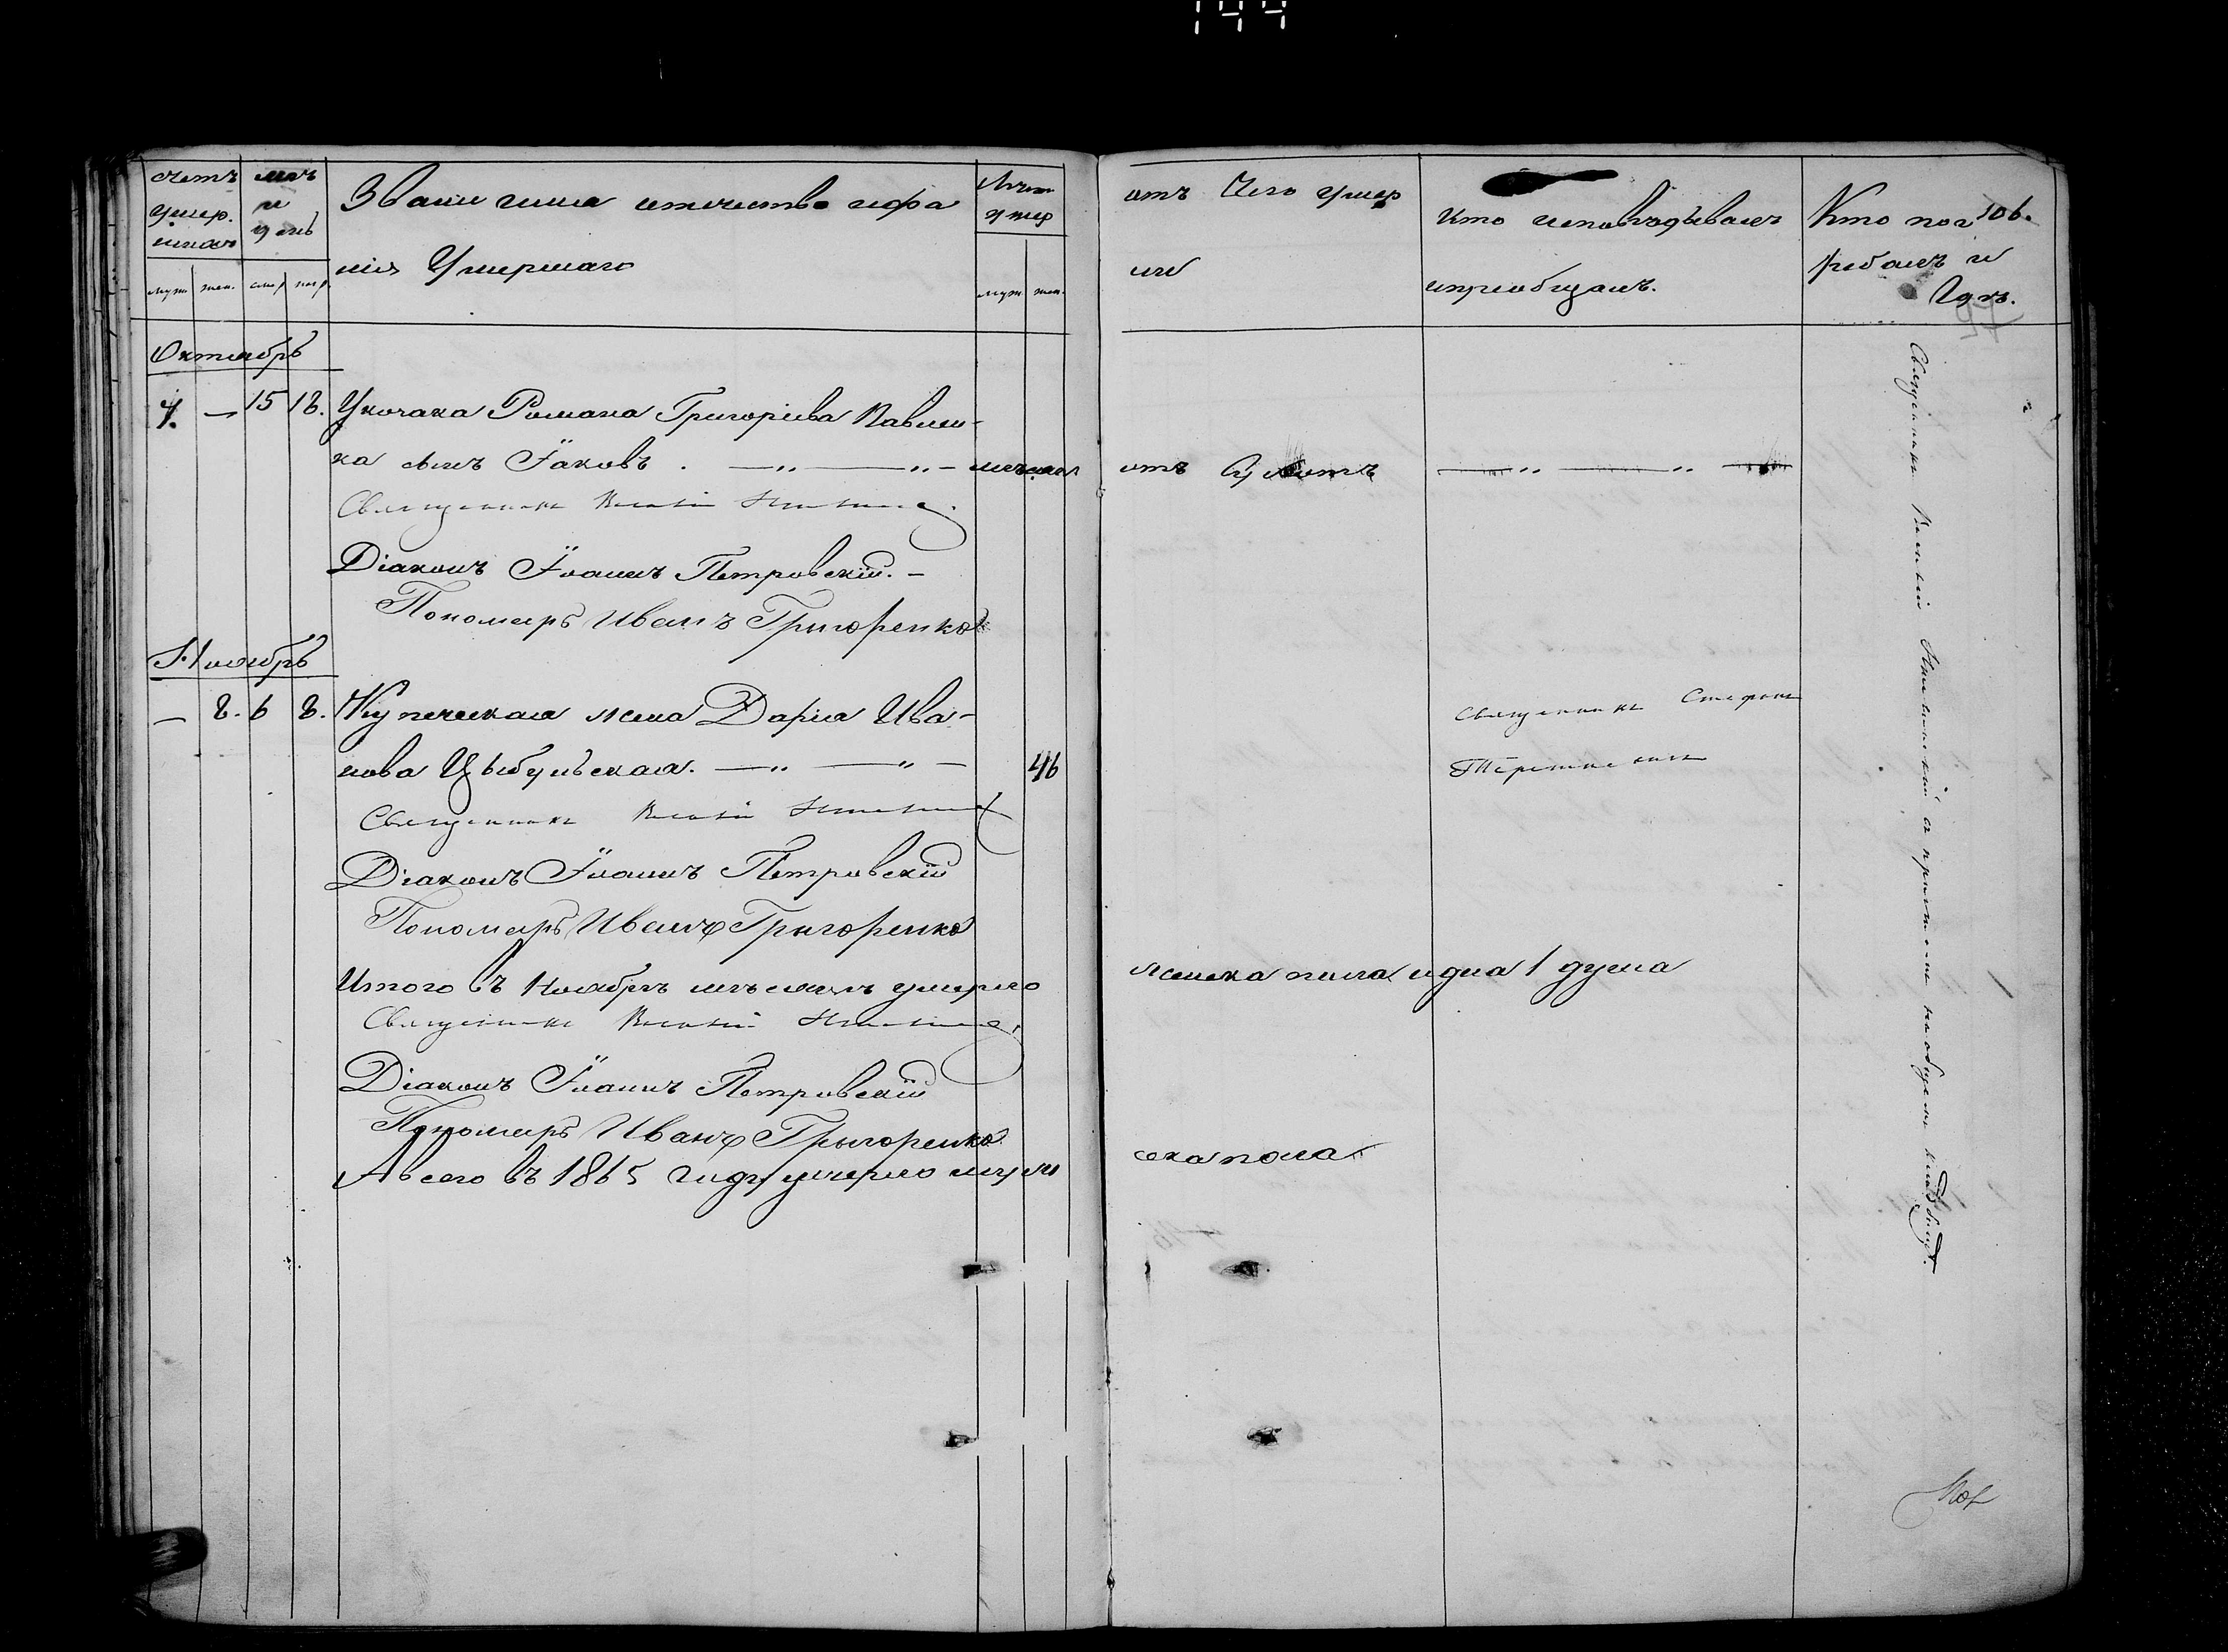 144
счетъ умер. мѣс. и день Званіе имя отечество и фами- Лѣта умер
лія Умершаго
муж. жен. муж. жен.
отъ Чего умеръ
Кто исповѣдывалъ
и пріобщалъ.
Кто пог 106.
ребалъ и
Гдѣ.
Октябрь
7. — 15 18. У Романа Григоріева Павлен-
ка сынъ Іаковъ. —„— —„— мѣсяцъ отъ —„— —„—
Священникъ
Діаконъ Іоаннъ Петровскій. —
Пономарь Иванъ Григоренко
Ноябрь
— 8. 6 8. Купеческая жена Дарія Ива-
нова Цыбульская. —„— —„— 46
Священникъ Стефанъ
Священникъ
Діаконъ Іоаннъ Петровскій
Пономарь Иванъ Григоренко
Итого въ Ноябрѣ мѣсяцѣ умерло женска пола одна 1 душа
Священникъ
Діаконъ Іоаннъ Петровскій
Пономарь Иванъ Григоренко
А всего въ 1865 году умерло муж ска пола
Священникъ съ причтомъ на общемъ кладбищѣ.